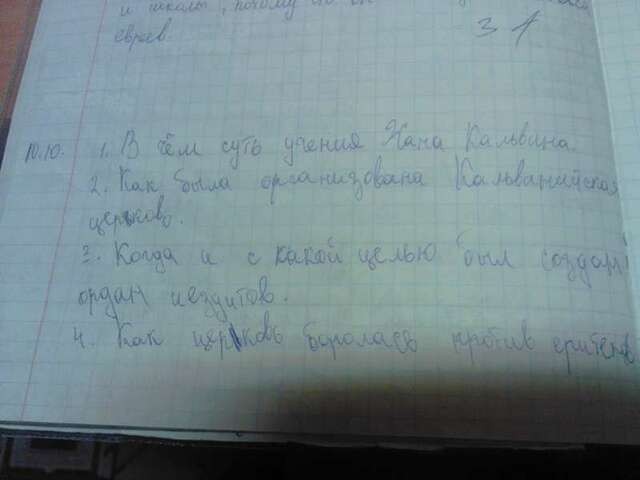 и школы, потому что он
евреев.
10.10. 1. В чём суть учения Жана Кальвина.
2. Как была организована Кальванийская
церковь.
3. Когда и с какой целью был создан
ордан иезуитов.
4. Как церковь боролась против еритеков